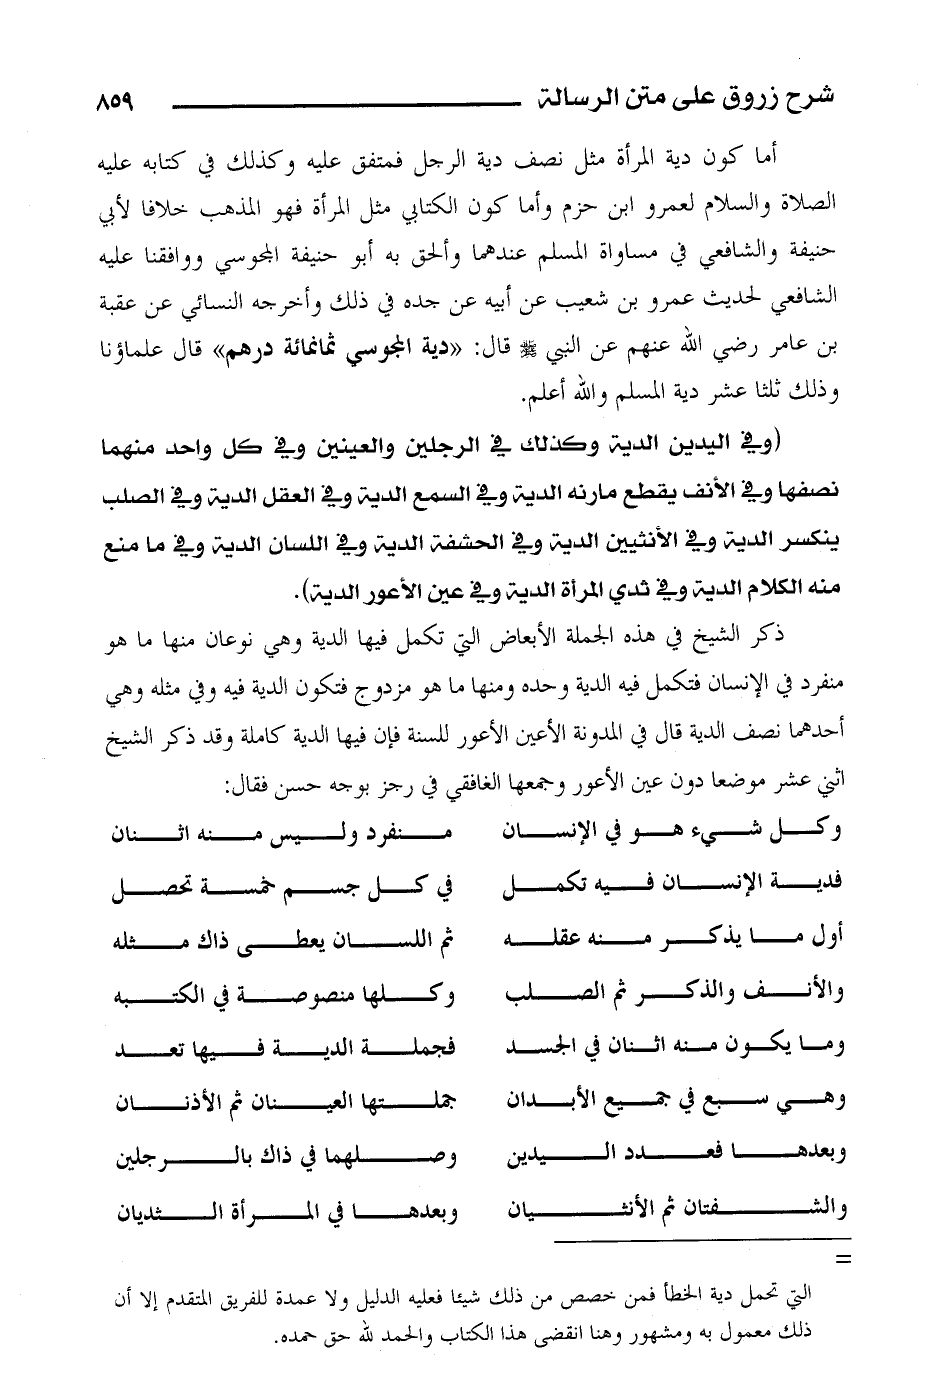 شرح زروق على متن الرسالة ٨٥٩
أما كون دية المرأة مثل نصف دية الرجل فمتفق عليه وكذلك في كتابه عليه
الصلاة والسلام لعمرو ابن حزم وأما كون الكتابي مثل المرأة فهو المذهب خلافا لأبي
حنيفة والشافعي في مساواة المسلم عندهما وألحق به أبو حنيفة المجوسي ووافقنا عليه
الشافعي لحديث عمرو بن شعيب عن أبيه عن جده في ذلك وأخرجه النسائي عن عقبة
بن عامر رضي الله عنهم عن النبي ﷺ قال: «دية المجوسي ثمانمائة درهم» قال علماؤنا
وذلك ثلثا عشر دية المسلم والله أعلم.
(وفي اليدين الدية وكذلك في الرجلين والعينين وفي كل واحد منهما
نصفها وفي الأنف يقطع مارنه الدية وفي السمع الدية وفي العقل الدية وفي الصلب
ينكسر الدية وفي الأنثيين الدية وفي الحشفة الدية وفي اللسان الدية وفي ما منع
منه الكلام الدية وفي ثدي المرأة الدية وفي عين الأعور الدية).
ذكر الشيخ في هذه الجملة الأبعاض التي تكمل فيها الدية وهي نوعان منها ما هو
منفرد في الإنسان فتكمل فيه الدية وحده ومنها ما هو مزدوج فتكون الدية فيه وفي مثله وهي
أحدهما نصف الدية قال في المدونة الأعين الأعور للسنة فإن فيها الدية كاملة وقد ذكر الشيخ
اثني عشر موضعا دون عين الأعور وجمعها الغافقي في رجز بوجه حسن فقال:
وكل شيء هو في الإنسان منفرد وليس منه اثنان
فدية الإنسان فيه تكمل في كل جسم خمسة تحصل
أول ما يذكر منه عقله ثم اللسان يعطى ذاك مثله
والأنف والذكر ثم الصلب وكلها منصوصة في الكتبه
وما يكون منه اثنان في الجسد فجملة الدية فيها تعد
وهي سبع في جميع الأبدان جملتها العينان ثم الأذنان
وبعدها فعدد اليدين وصلهما في ذاك بالرجلين
والشفتان ثم الأنثيان وبعدها في المرأة الثديان
=
التي تحمل دية الخطأ فمن خصص من ذلك شيئا فعليه الدليل ولا عمدة للفريق المتقدم إلا أن
ذلك معمول به ومشهور وهنا انقضى هذا الكتاب والحمد لله حق حمده.